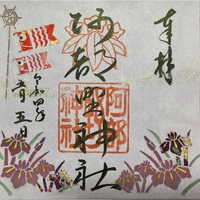 奉拝
阿部野神社
令和四年
五月五日
阿部野
神社